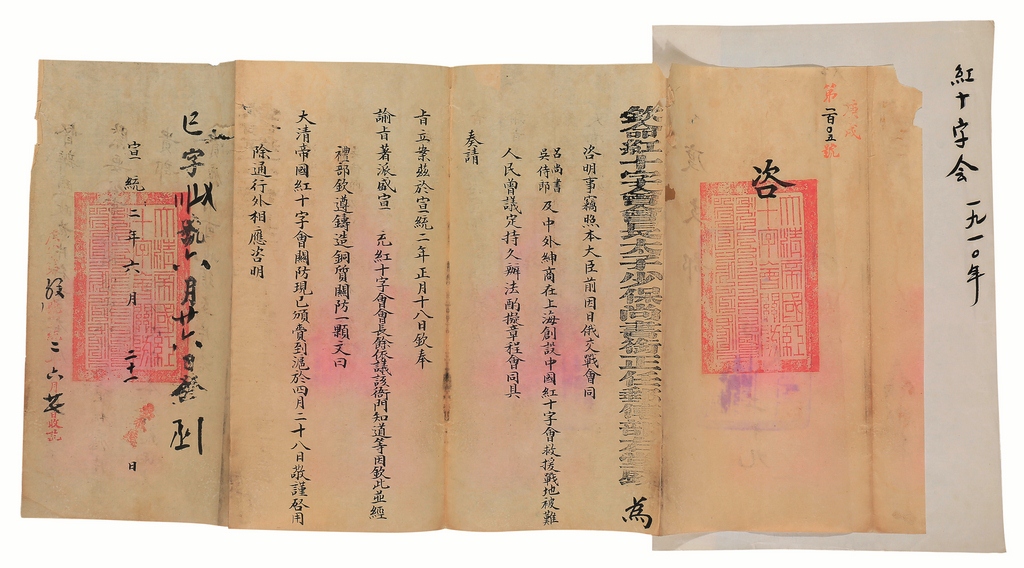 紅十字会 一九一〇年
庚戌
第一百〇五號
咨
大清帝國紅十字會關防
欽命紅十字會會長太子少保尚書銜正任郵傳部右堂盛 為
咨明事竊照本大臣前因日俄交戰會同
呂尚書
吳侍郎
及中外紳商在上海創設中國紅十字會救援戰地被難
人民曾議定持久辦法酌擬章程會同具
奏請
旨立案茲於宣統二年正月十八日欽奉
諭旨著派盛宣 充紅十字會會長餘依議該衙門知道等因欽此並經
禮部欽遵鑄造銅質關防一顆文曰
大清帝國紅十字會關防現已頒賫到滬於四月二十八日敬謹啓用
除通行外相應咨明
已字 號六月廿六日 到
大清帝國紅十字會關防
宣統二年六月 二十一 日